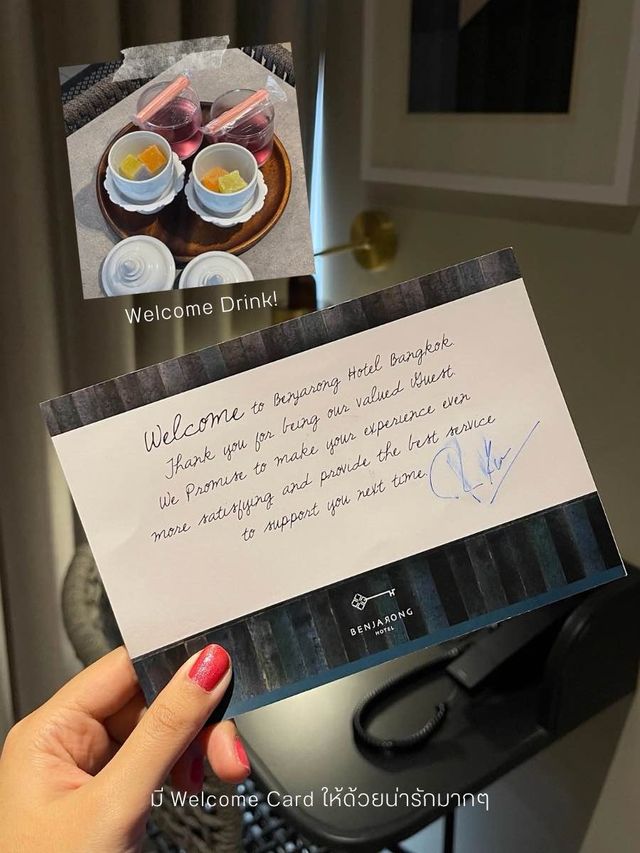 Welcome Drink!
Welcome to Benjarong Hotel Bangkok.
Thank you for being our valued Guest.
We Promise to make your experience even
more satisfying and provide the best service
to support you next time.
BENJARONG
HOTEL
มี Welcome Card ให้ด้วยน่ารักมากๆ